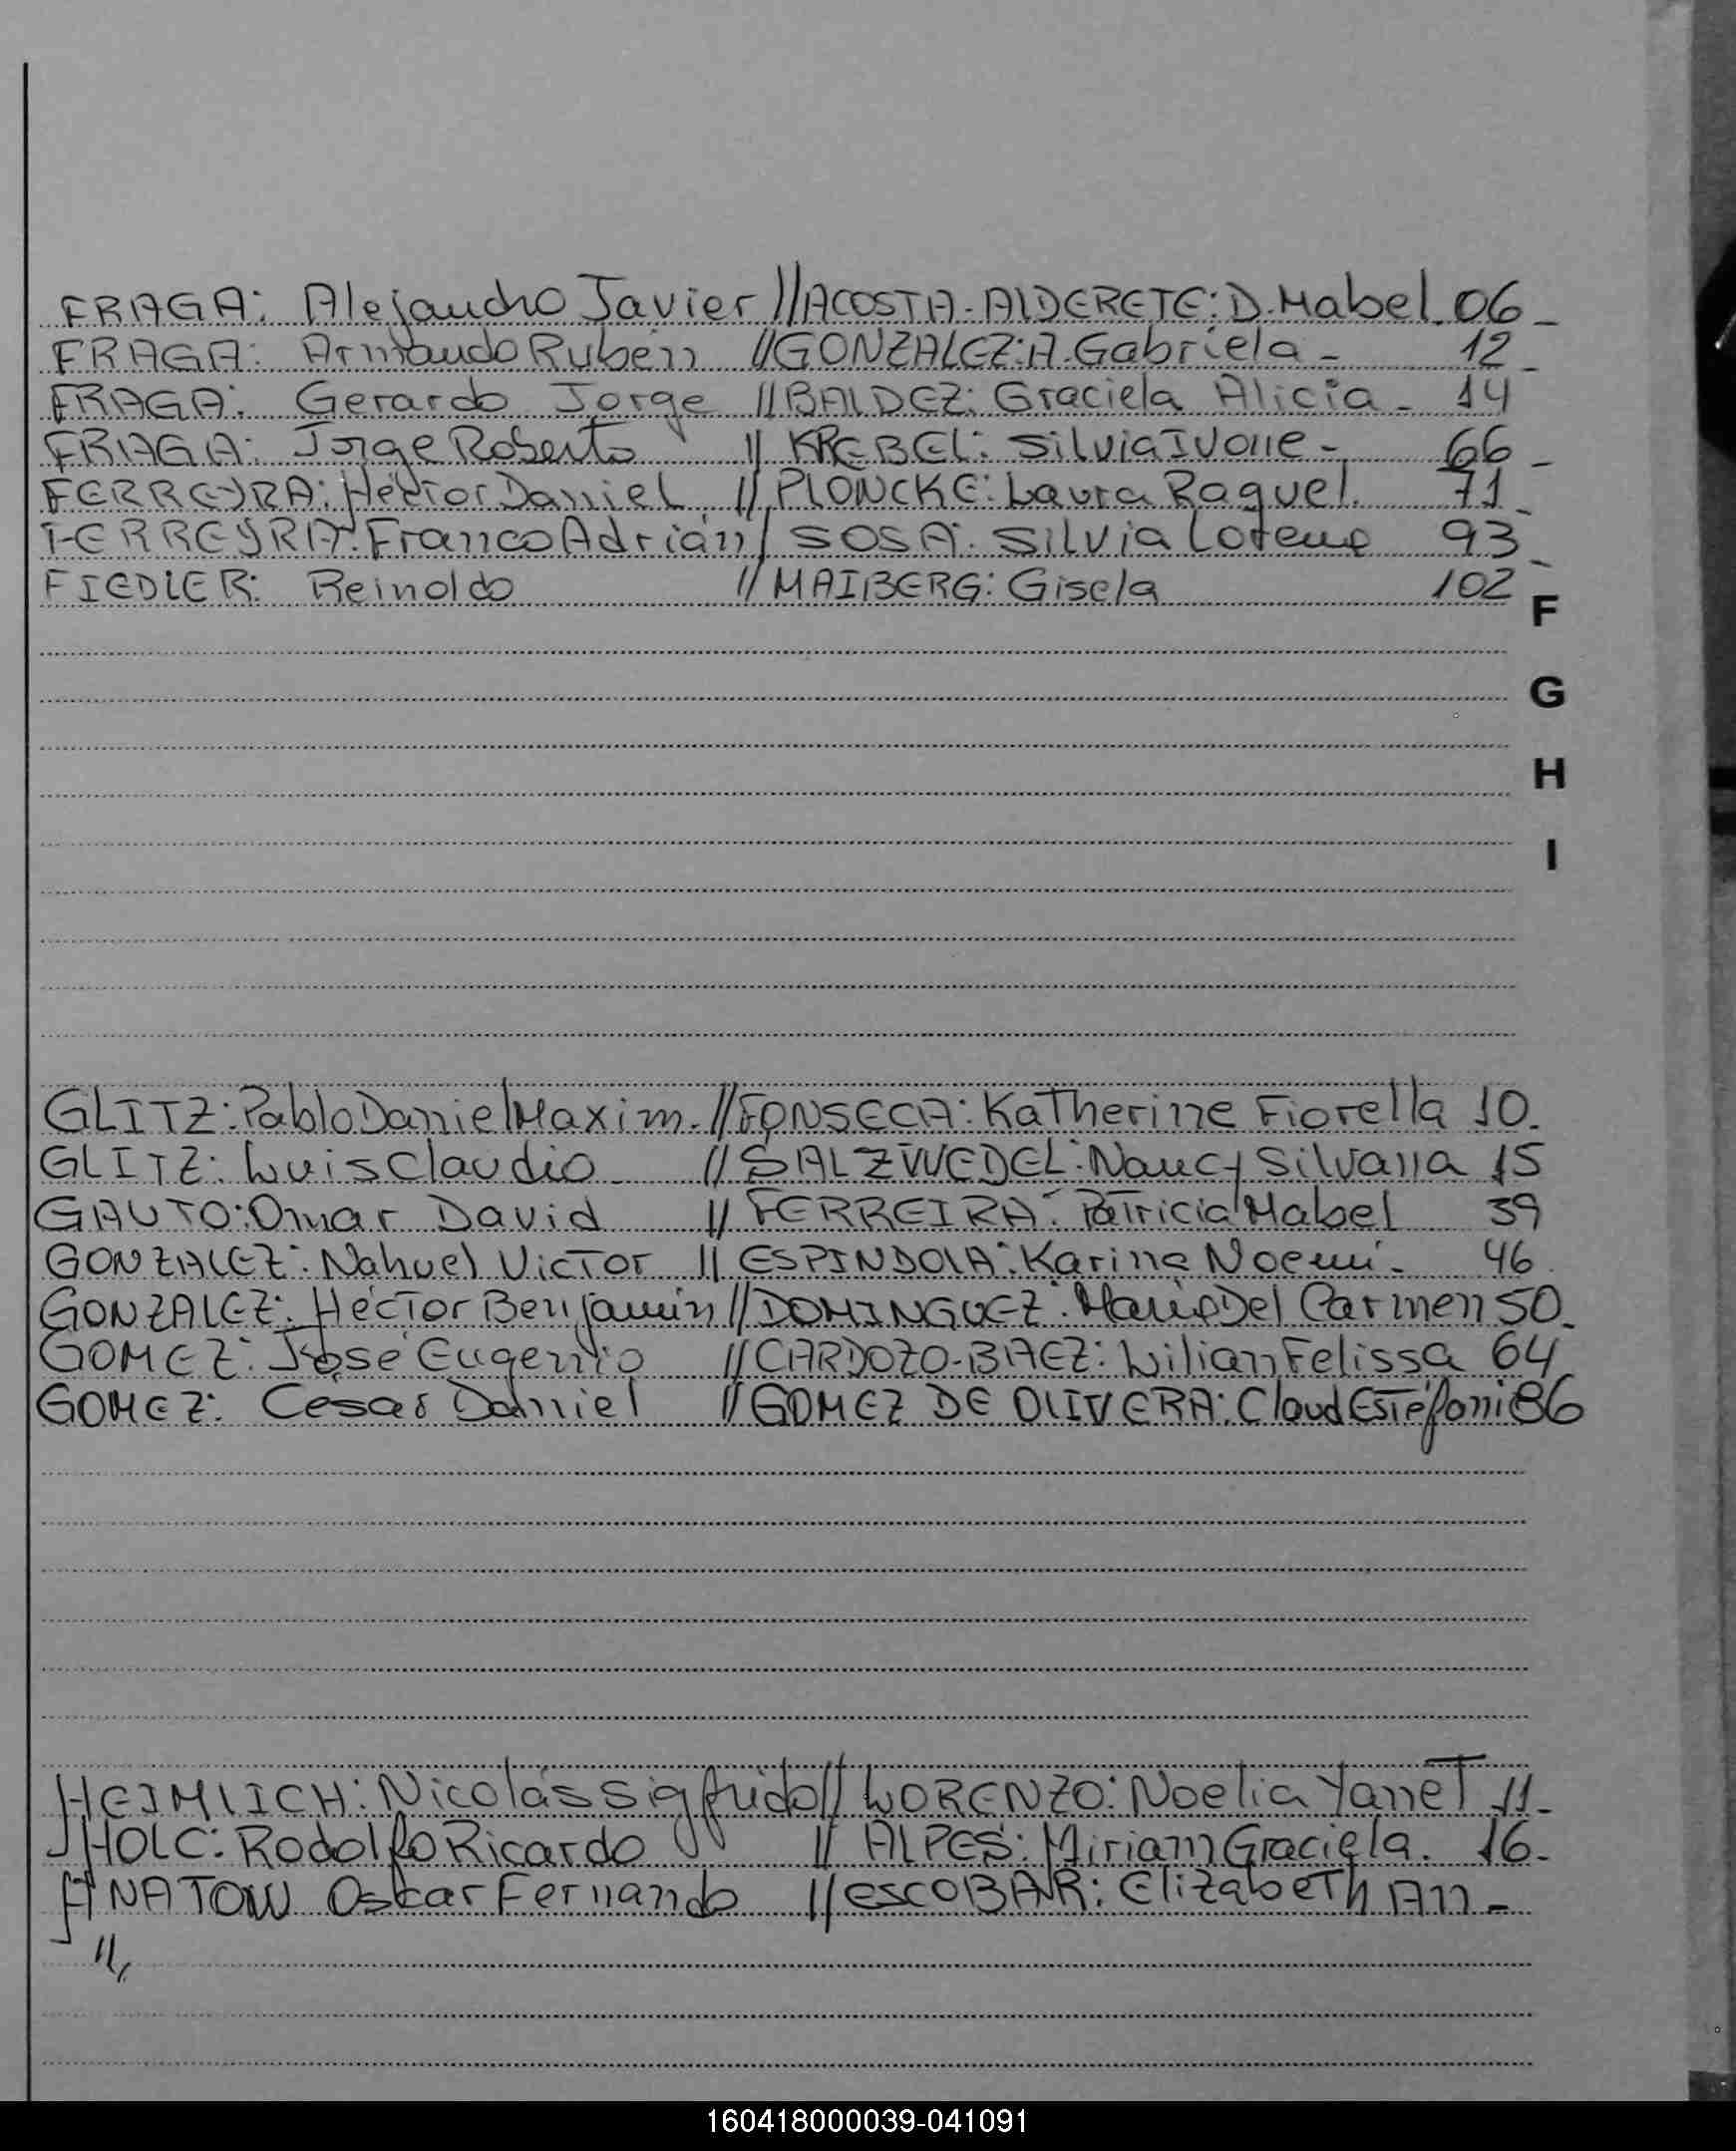 FRAGA: Alejandro Javier // ACOSTA-ALDERETE: D. Mabel. 06 -
FRAGA: Armando Rubén // GONZALEZ: A. Gabriela - 12 -
FRAGA: Gerardo Jorge // BALDEZ: Graciela Alicia - 14
FRAGA: Jorge Roberto // KREBEL: Silvia Ivone - 66 -
FERREYRA: Héctor Daniel // PLONCKE: Laura Raquel. 71 -
FERREYRA: Franco Adrián / SOSA: Silvia Lorena 93 -
FIEDLER: Reinoldo // MAIBERG: Gisela 102
F
G
H
I
GLITZ: Pablo Daniel Maxim. // FONSECA: Katherine Fiorella 10.
GLITZ: Luis Claudio // SALZWEDEL: Nancy Silvana 15
GAUTO: Omar David // FERREIRA: Patricia Mabel 39
GONZALEZ: Nahuel Victor // ESPINDOLA: Karina Noemi. 46
GONZALEZ: Héctor Benjamín // DOMINGUEZ: María Del Carmen 50.
GOMEZ: José Eugenio // CARDOZO-BAEZ: Lilian Felissa 64
GOMEZ: César Daniel // GOMEZ DE OLIVERA: Claud Estéfani 86
HEIMLICH: Nicolás Sigfrido // LORENZO: Noelia Yanet 11.
HOLC: Rodolfo Ricardo // ALPES: Miriam Graciela. 16.
HNATOW Oscar Fernando // escoBAR: Elizabeth An -
160418000039-041091